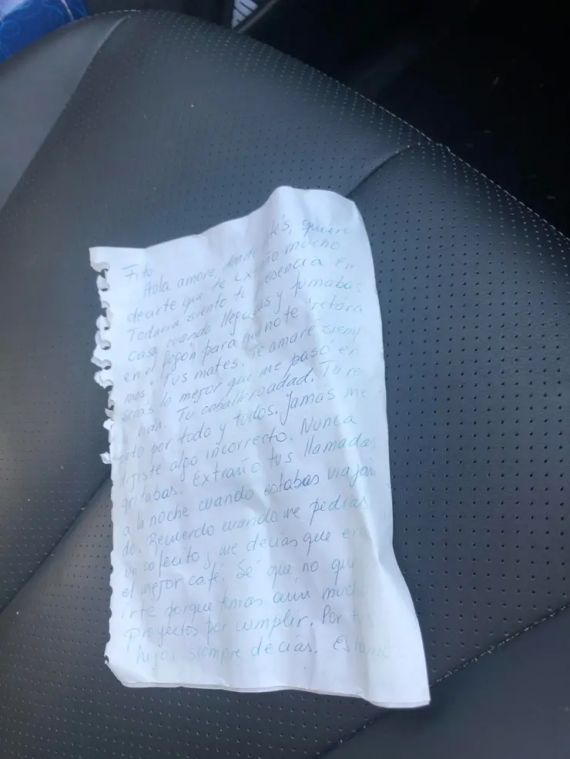 Fito
Hola amore, donde estés, quiero
decirte que te extraño mucho
Todavía siento tu esencia en
casa cuando llegabas y fumabas
en el fogón para que no te retára
mos. Tus mates. Te amaré siemp
eras lo mejor que me pasó en
mi vida. Tu caballerosidad. Tu re
peto por todo y todos. Jamas me
dijiste algo incorrecto. Nunca
gritabas. Extraño tus llamadas
a la noche cuando estabas viajan
do. Recuerdo cuando me pedias
un cafecito, me decias que era
el mejor café. Sé que no qui
irte porque tenias aún much
proyectos por cumplir. Por tus
hijos siempre decías.